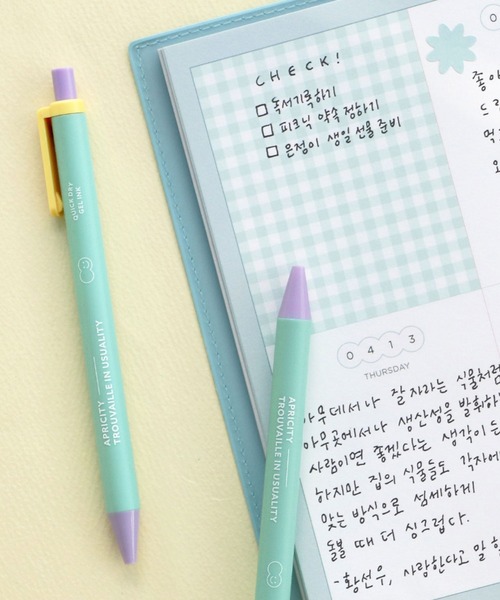 CHECK!
□ 독서기록하기
□ 피크닉 약속 정하기
□ 은정이 생일 선물 준비
좋아
드
먹
0
0413
THURSDAY
아무데서나 잘 자라는 식물처럼
아무곳에서나 생산성을 발휘하
사람이면 좋겠다는 생각이 든
하지만 집의 식물들도 각자에
맞는 방식으로 섬세하게
돌볼 때 더 싱그럽다.
-황선우, 사랑한다고 말할
QUICK DRY
GEL INK
APRICITY
TROUVAILLE IN USUALITY
APRICITY
TROUVAILLE IN USUALITY